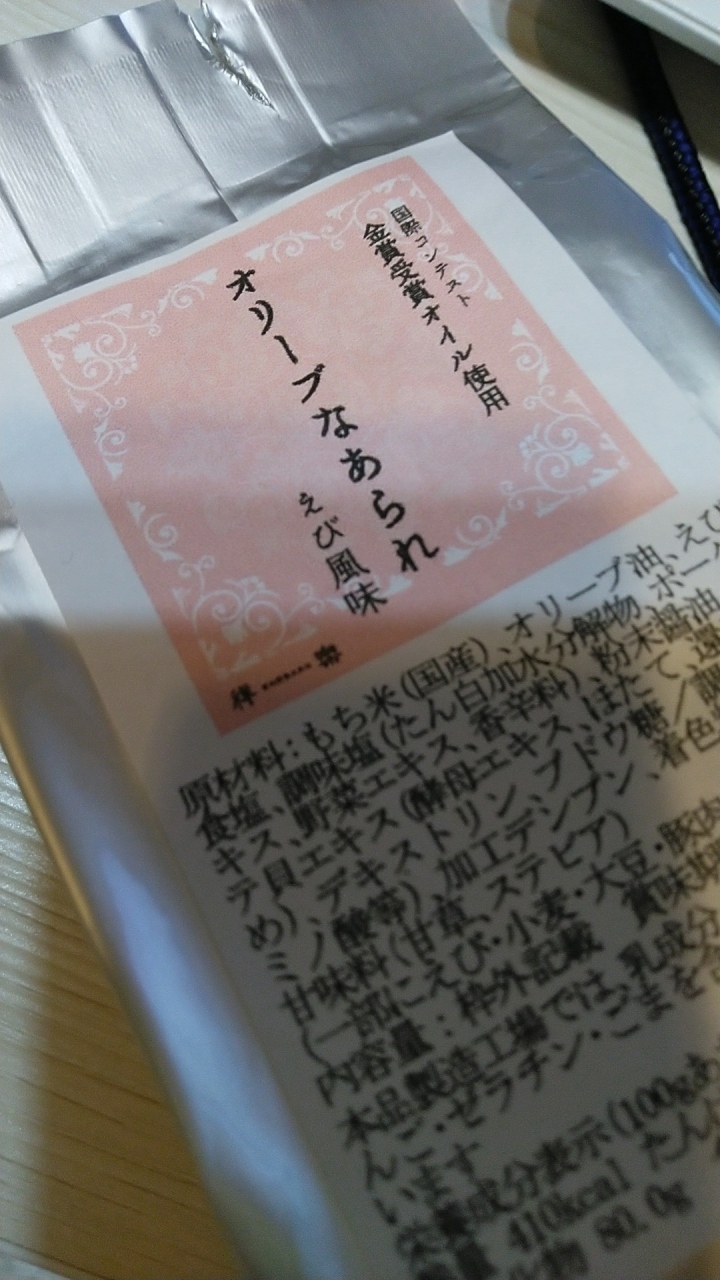 国際コンテスト
金賞受賞オイル使用
オリーブなあられ
えび風味
原材料：もち米(国産)、オリーブ油、えび
食塩、調味塩(たん白加水分解物、ポー
キス、野菜エキス、香辛料)、粉末醤油
テ貝エキス(酵母エキス、ほたて、還
め)、デキストリン、ブドウ糖／調
ミノ酸等)、加工デンプン、着色
甘味料(甘草、ステビア)
(一部にえび・小麦・大豆・豚肉
内容量：枠外記載 賞味期
本品製造工場では、乳成分
んご・ゼラチン・ごまを
います
栄養成分表示(100gあ
410kcal たん
80.0g